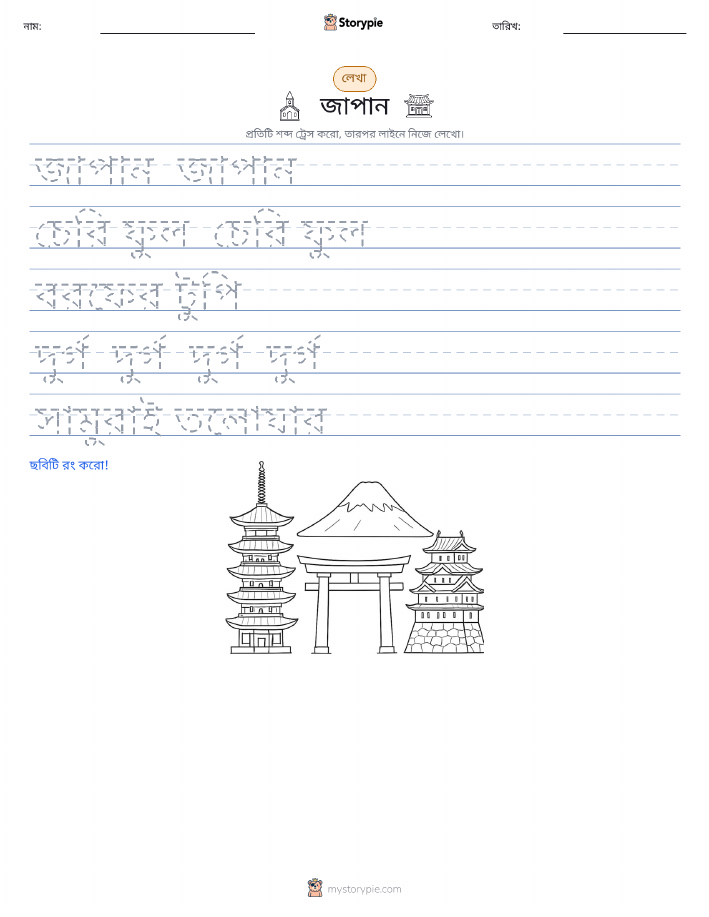 নাম:
Storypie
তারিখ:
লেখা
জাপান
প্রতিটি শব্দ ট্রেস করো, তারপর লাইনে নিজে লেখো।
জাপান জাপান
চেরি ফুল চেরি ফুল
বরফের টুপি
দুর্গ দুর্গ দুর্গ দুর্গ
সামুরাই তলোয়ার
ছবিটি রং করো!
mystorypie.com